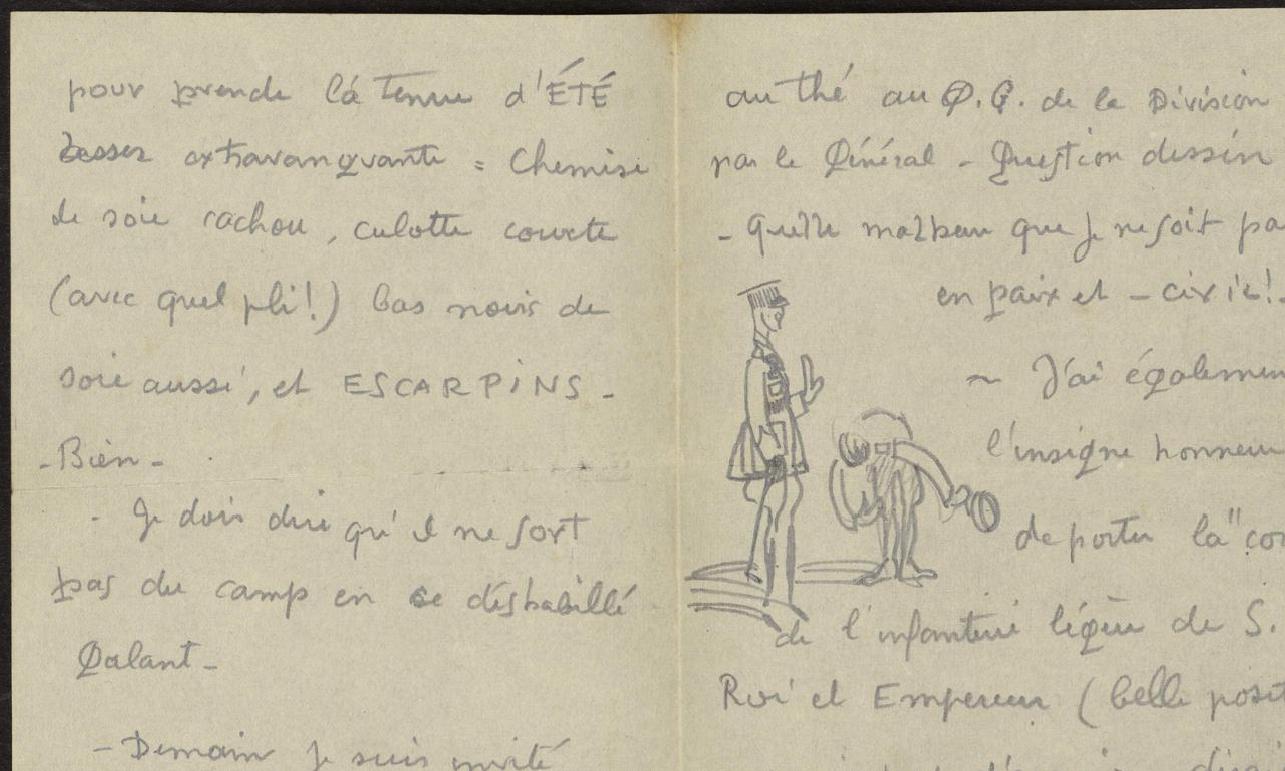 pour prende là tenue d'ÉTÉ
assez extravanquante = Chemise
de soie cachou, culotte courte
(avec quel pli!) bas noirs de
soie aussi, et ESCARPINS -
- Bien -
- Je dois dire qu'il ne sort
pas du camp en ce déshabillé
Galant -
- Demain je suis invité
au thé au Q.G. de la Division
par le Général - Question dessin
- Quelle malheur que je ne soit pa
en paix et - civil!
~ J'ai égalemen
l'insigne honneur
de porter là "cor
de l'infanterie légère de S.
Roi et Empereur (belle posit